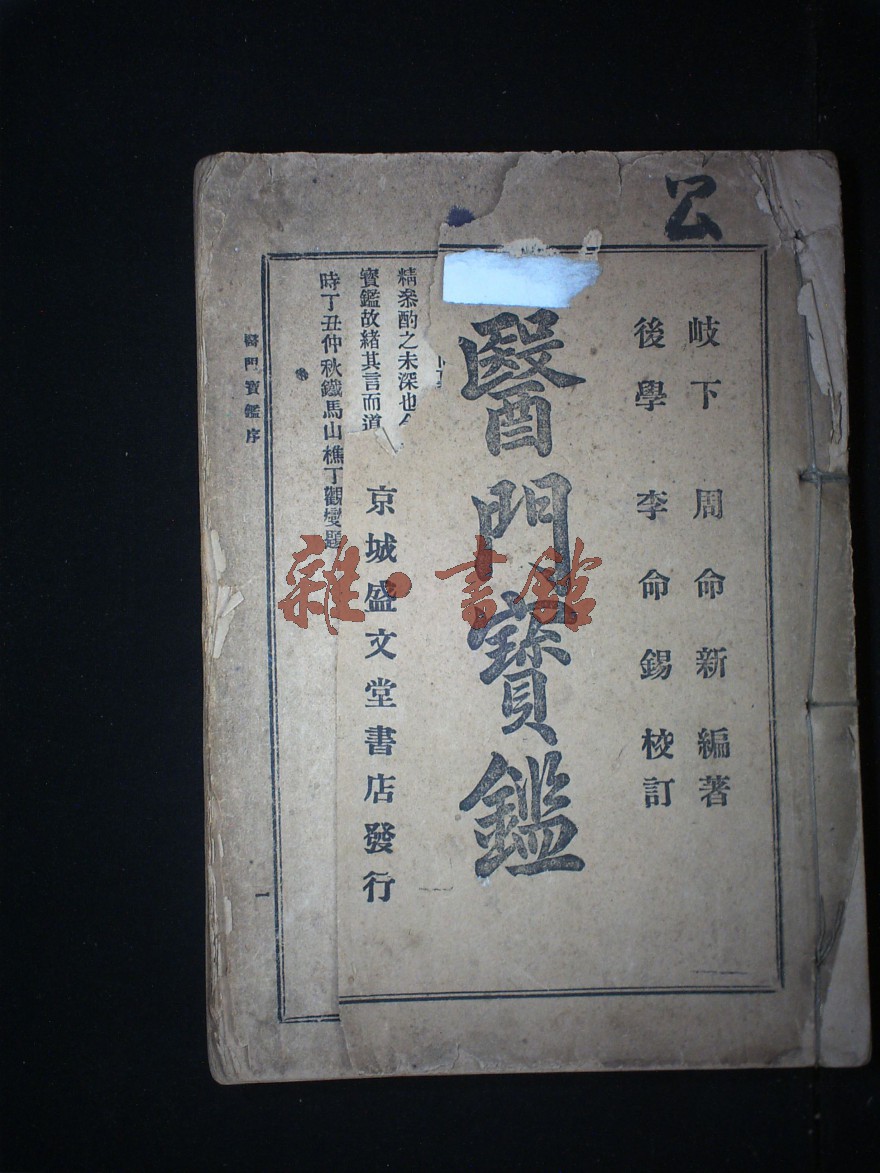 岐下 周命新 編著
後學 李命錫 校訂
醫門寶鑑
京城盛文堂書店發行
精叅酌之未深也
寶鑑故緒其言而道
時丁丑仲秋鐵馬山樵丁觀燮題
醫門寶鑑序
一
雜·書館